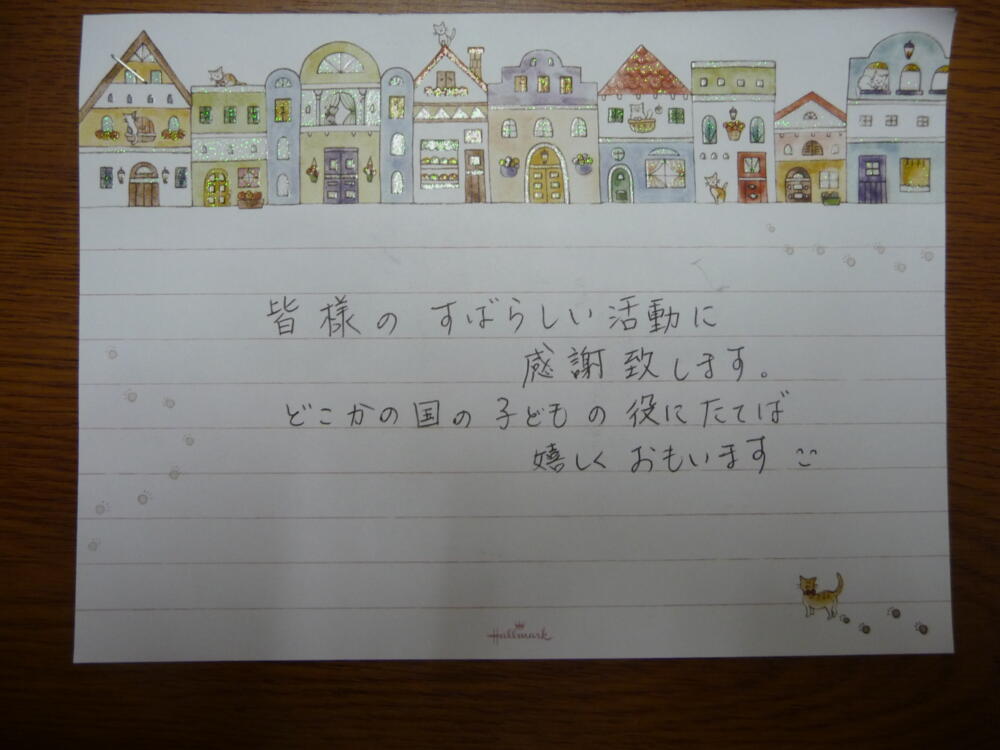 皆様の すばらしい活動に
感謝致します。
どこかの国の子どもの役にたてば
嬉しく おもいます
Hallmark